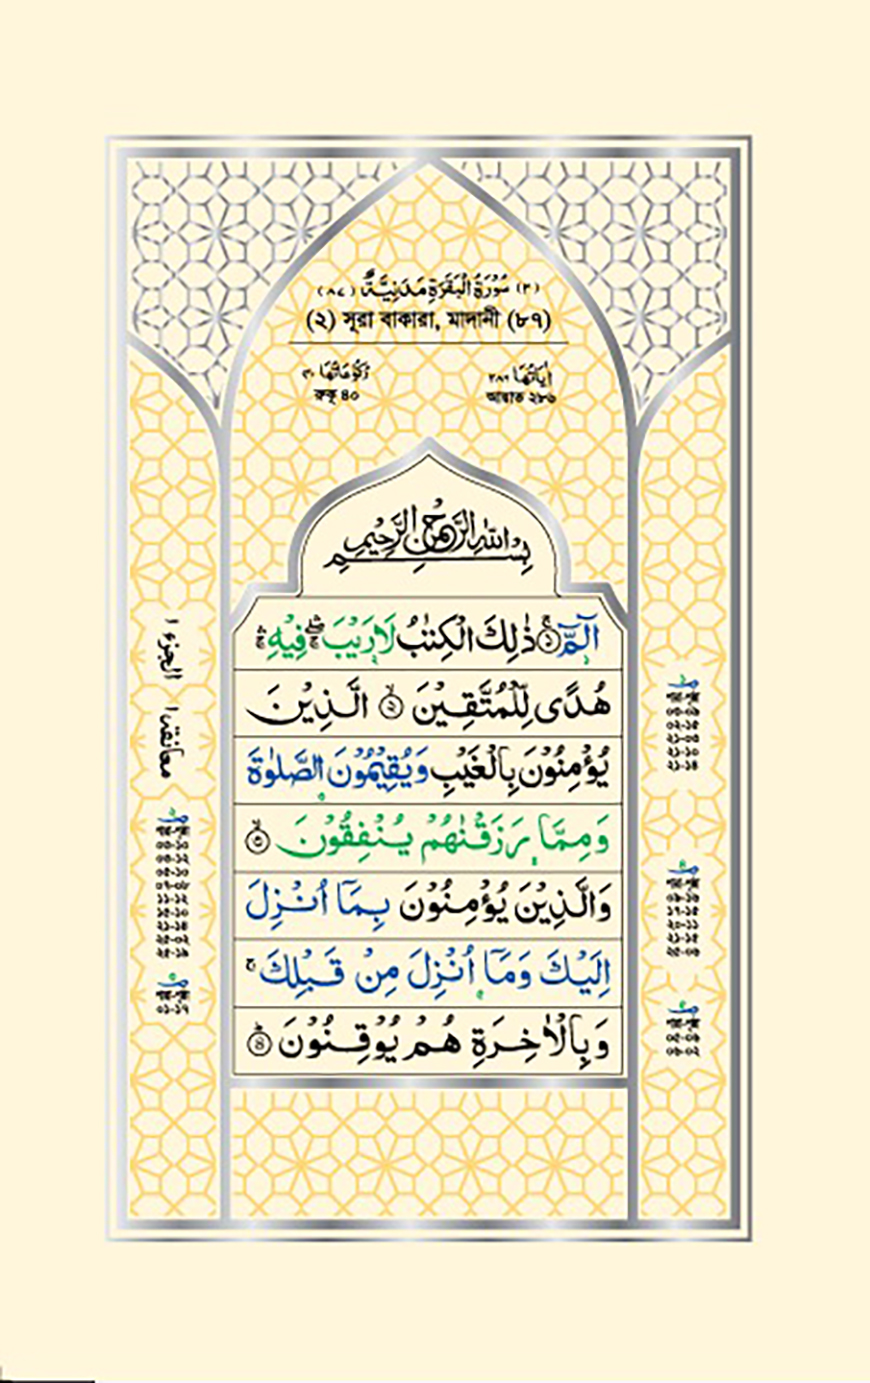 (٢) سُوْرَةُ الْبَقَرَةِ مَدَنِيَّةٌ (٨٧)
(২) সূরা বাকারা, মাদানী (৮৭)
اٰيَاتُهَا ٢٨٦ رُكُوْعَاتُهَا ٤٠
আয়াত ২৮৬ রুকূ ৪০
بِسْمِ اللّٰهِ الرَّحْمٰنِ الرَّحِيْمِ
الٓمّٓ ۚ ﴿١﴾ ذٰلِكَ الْكِتٰبُ لَا رَيْبَ ۛۖ فِيْهِ ۛۚ
هُدًى لِّلْمُتَّقِيْنَ ۙ ﴿٢﴾ الَّذِيْنَ
يُؤْمِنُوْنَ بِالْغَيْبِ وَيُقِيْمُوْنَ الصَّلٰوةَ
وَمِمَّا رَزَقْنٰهُمْ يُنْفِقُوْنَ ۙ ﴿٣﴾
وَالَّذِيْنَ يُؤْمِنُوْنَ بِمَآ اُنْزِلَ
اِلَيْكَ وَمَآ اُنْزِلَ مِنْ قَبْلِكَ ۚ
وَبِالْاٰخِرَةِ هُمْ يُوْقِنُوْنَ ؕ ﴿٤﴾
الجزء ١
معانقة ١